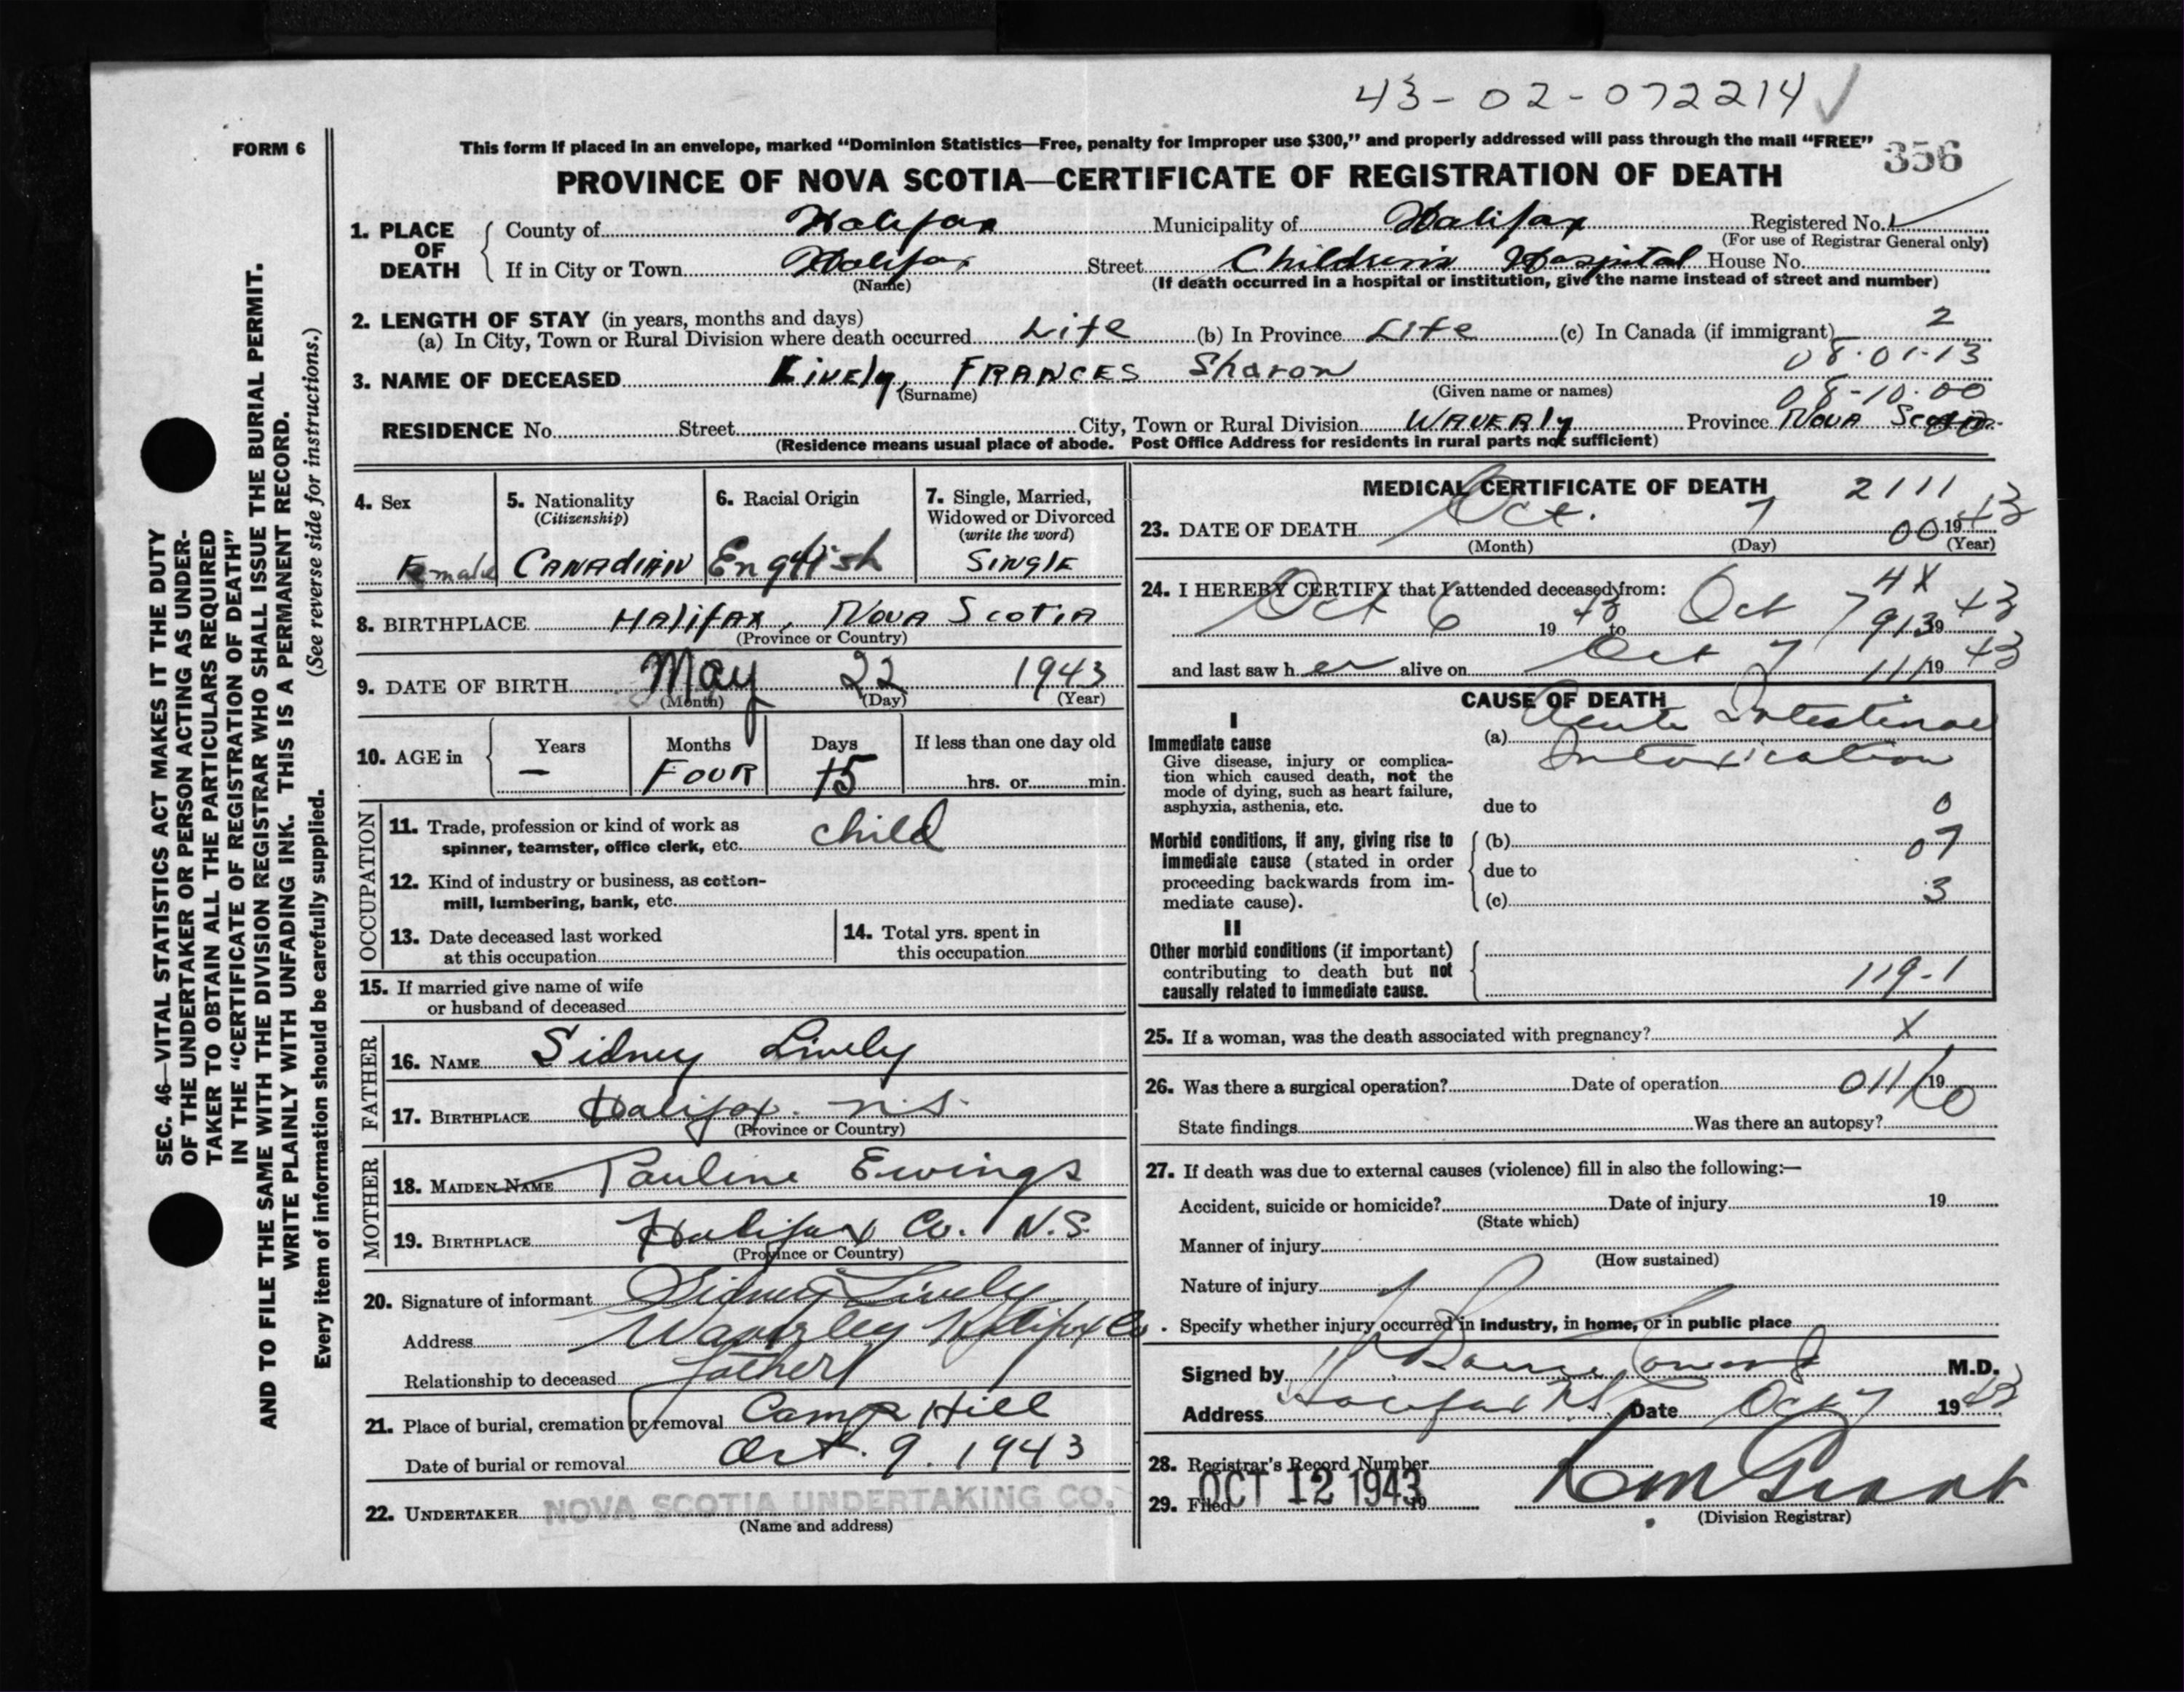 43-02-072214
FORM 6
This form if placed in an envelope, marked “Dominion Statistics—Free, penalty for improper use $300,” and properly addressed will pass through the mail “FREE”
356
PROVINCE OF NOVA SCOTIA—CERTIFICATE OF REGISTRATION OF DEATH
1. PLACE OF DEATH
County of Halifax Municipality of Halifax Registered No.
(For use of Registrar General only)
If in City or Town Halifax Street Children's Hospital House No.
(Name) (If death occurred in a hospital or institution, give the name instead of street and number)
2. LENGTH OF STAY (in years, months and days)
(a) In City, Town or Rural Division where death occurred Life (b) In Province Life (c) In Canada (if immigrant) 2
08-01-13
3. NAME OF DECEASED Lively, FRANCES Sharon
(Surname) (Given name or names)
08-10-00
RESIDENCE No. Street City, Town or Rural Division WAVERLy Province NOVA Scotia
(Residence means usual place of abode. Post Office Address for residents in rural parts not sufficient)
4. Sex
Female
5. Nationality
(Citizenship)
CANADIAN
6. Racial Origin
English
7. Single, Married,
Widowed or Divorced
(write the word)
SinglE
8. BIRTHPLACE HALifAX, NOVA ScotiA
(Province or Country)
9. DATE OF BIRTH May 22 1943
(Month) (Day) (Year)
10. AGE in
Years
—
Months
FOUR
Days
15
If less than one day old
hrs. or min.
OCCUPATION
11. Trade, profession or kind of work as
spinner, teamster, office clerk, etc. child
12. Kind of industry or business, as cotton-
mill, lumbering, bank, etc.
13. Date deceased last worked
at this occupation
14. Total yrs. spent in
this occupation
15. If married give name of wife
or husband of deceased
FATHER
16. NAME Sidney Lively
17. BIRTHPLACE Halifax. N.S.
(Province or Country)
MOTHER
18. MAIDEN NAME Pauline Ewings
19. BIRTHPLACE Halifax Co. N.S.
(Province or Country)
20. Signature of informant Sidney Lively
Address Waverley Halifax Co
Relationship to deceased father
21. Place of burial, cremation or removal Camp Hill
Date of burial or removal Oct. 9. 1943
22. UNDERTAKER NOVA SCOTIA UNDERTAKING CO.
(Name and address)
MEDICAL CERTIFICATE OF DEATH
2111
23. DATE OF DEATH Oct. 7 00 1943
(Month) (Day) (Year)
24. I HEREBY CERTIFY that I attended deceased from: 4X
Oct 6 1943 to Oct 7 913 1943
and last saw her alive on Oct 7 11/ 1943
CAUSE OF DEATH
I
Immediate cause
Give disease, injury or complica-
tion which caused death, not the
mode of dying, such as heart failure,
asphyxia, asthenia, etc.
(a) Acute Intestinal
Intoxication
due to 0
Morbid conditions, if any, giving rise to
immediate cause (stated in order
proceeding backwards from im-
mediate cause).
(b) 07
due to
(c) 3
II
Other morbid conditions (if important)
contributing to death but not
causally related to immediate cause.
119-1
25. If a woman, was the death associated with pregnancy? X
26. Was there a surgical operation? Date of operation 011/ 19
State findings Was there an autopsy?
27. If death was due to external causes (violence) fill in also the following:—
Accident, suicide or homicide? Date of injury 19
(State which)
Manner of injury
(How sustained)
Nature of injury
Specify whether injury occurred in industry, in home, or in public place
Signed by M.D.
Address Halifax N.S. Date Oct 7 1943
28. Registrar's Record Number
29. Filed OCT 12 1943 19
(Division Registrar)
SEC. 46—VITAL STATISTICS ACT MAKES IT THE DUTY
OF THE UNDERTAKER OR PERSON ACTING AS UNDER-
TAKER TO OBTAIN ALL THE PARTICULARS REQUIRED
IN THE “CERTIFICATE OF REGISTRATION OF DEATH”
AND TO FILE THE SAME WITH THE DIVISION REGISTRAR WHO SHALL ISSUE THE BURIAL PERMIT.
WRITE PLAINLY WITH UNFADING INK. THIS IS A PERMANENT RECORD.
Every item of information should be carefully supplied. (See reverse side for instructions.)